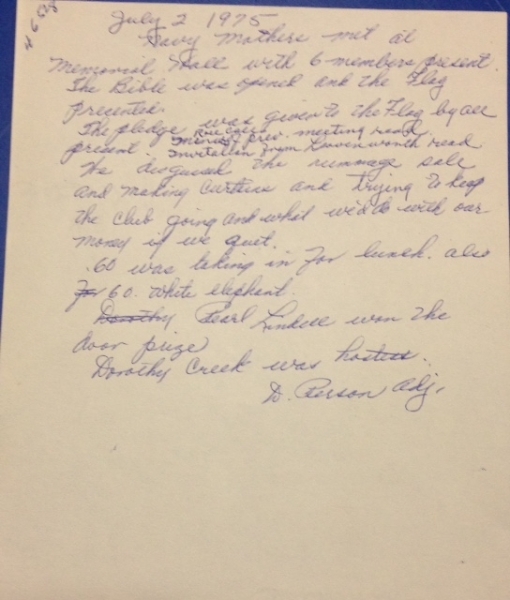 July 2 1975
Navy Mothers met at
Memorial Hall with 6 members present.
The Bible was opened and the Flag
presented.
The pledge was given to the Flag by all
present. Roll call Minutes of prev. meeting read.
Invitation from Leavenworth read
We disgused the rummage sale
and making curtains and trying to keep
the club going and what we'd do with our
money if we quit.
.60 was taking in for lunch. also
for 60. White elephant.
Dorothy Pearl Lindell won the
door prize
Dorothy Creek was hostess.
D. Person Adj.